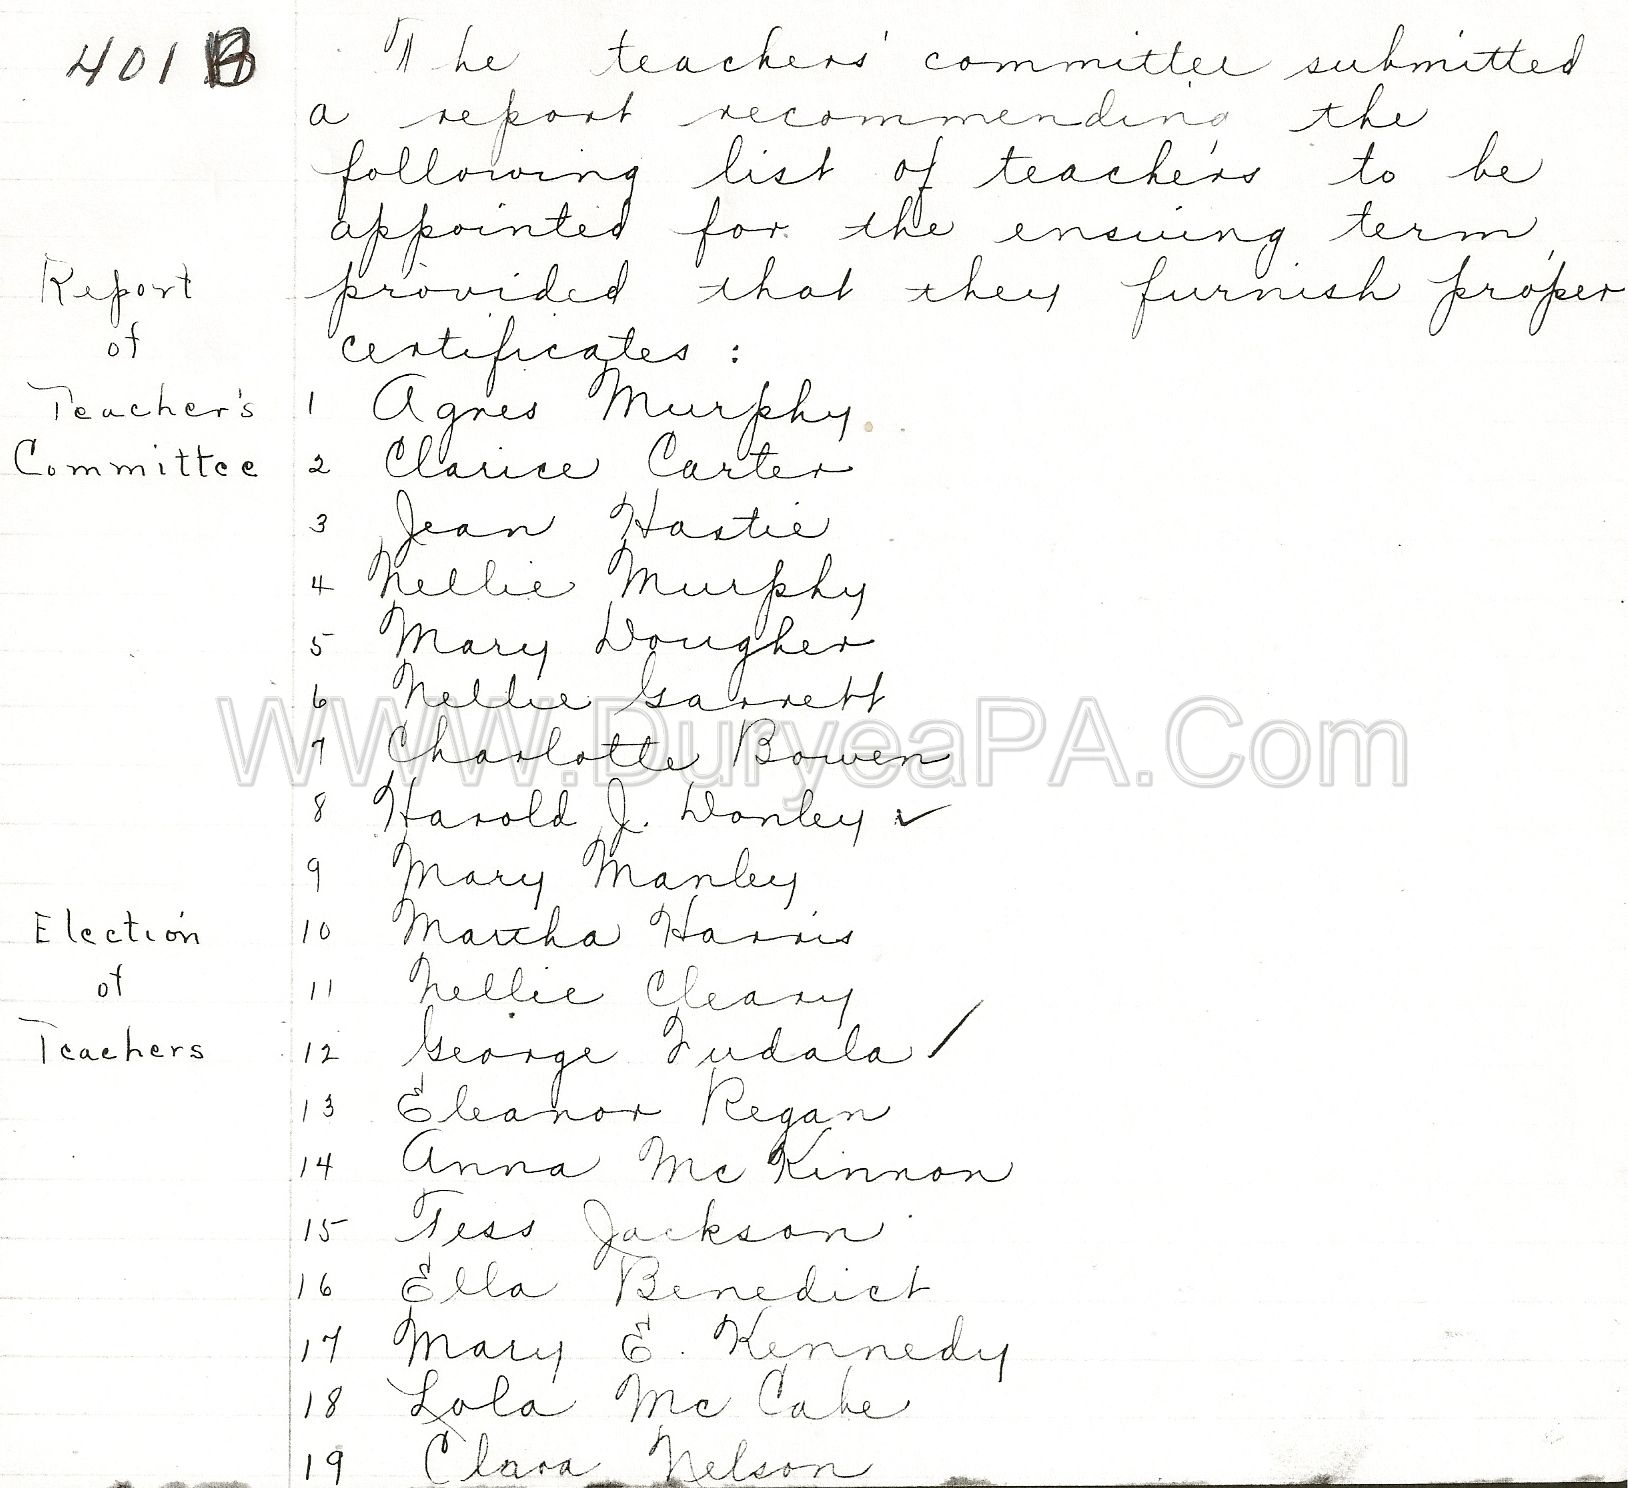 401 B The teachers' committee submitted
a report recommending the
following list of teachers to be
appointed for the ensuing term,
Report provided that they furnish proper
of certificates :
Teacher's 1 Agnes Murphy
Committee 2 Clarice Carter
3 Jean Hastie
4 Nellie Murphy
5 Mary Dougher
6 Nellie Garrett
WWW.DuryeaPA.Com
7 Charlotte Bowen
8 Harold J. Donley ✓
9 Mary Manley
Election 10 Martha Harris
of 11 Nellie Cleary
Teachers 12 George Fudala /
13 Eleanor Regan
14 Anna Mc Kinnon
15 Tess Jackson
16 Ella Benedict
17 Mary E. Kennedy
18 Lola Mc Cabe
19 Clara Nelson